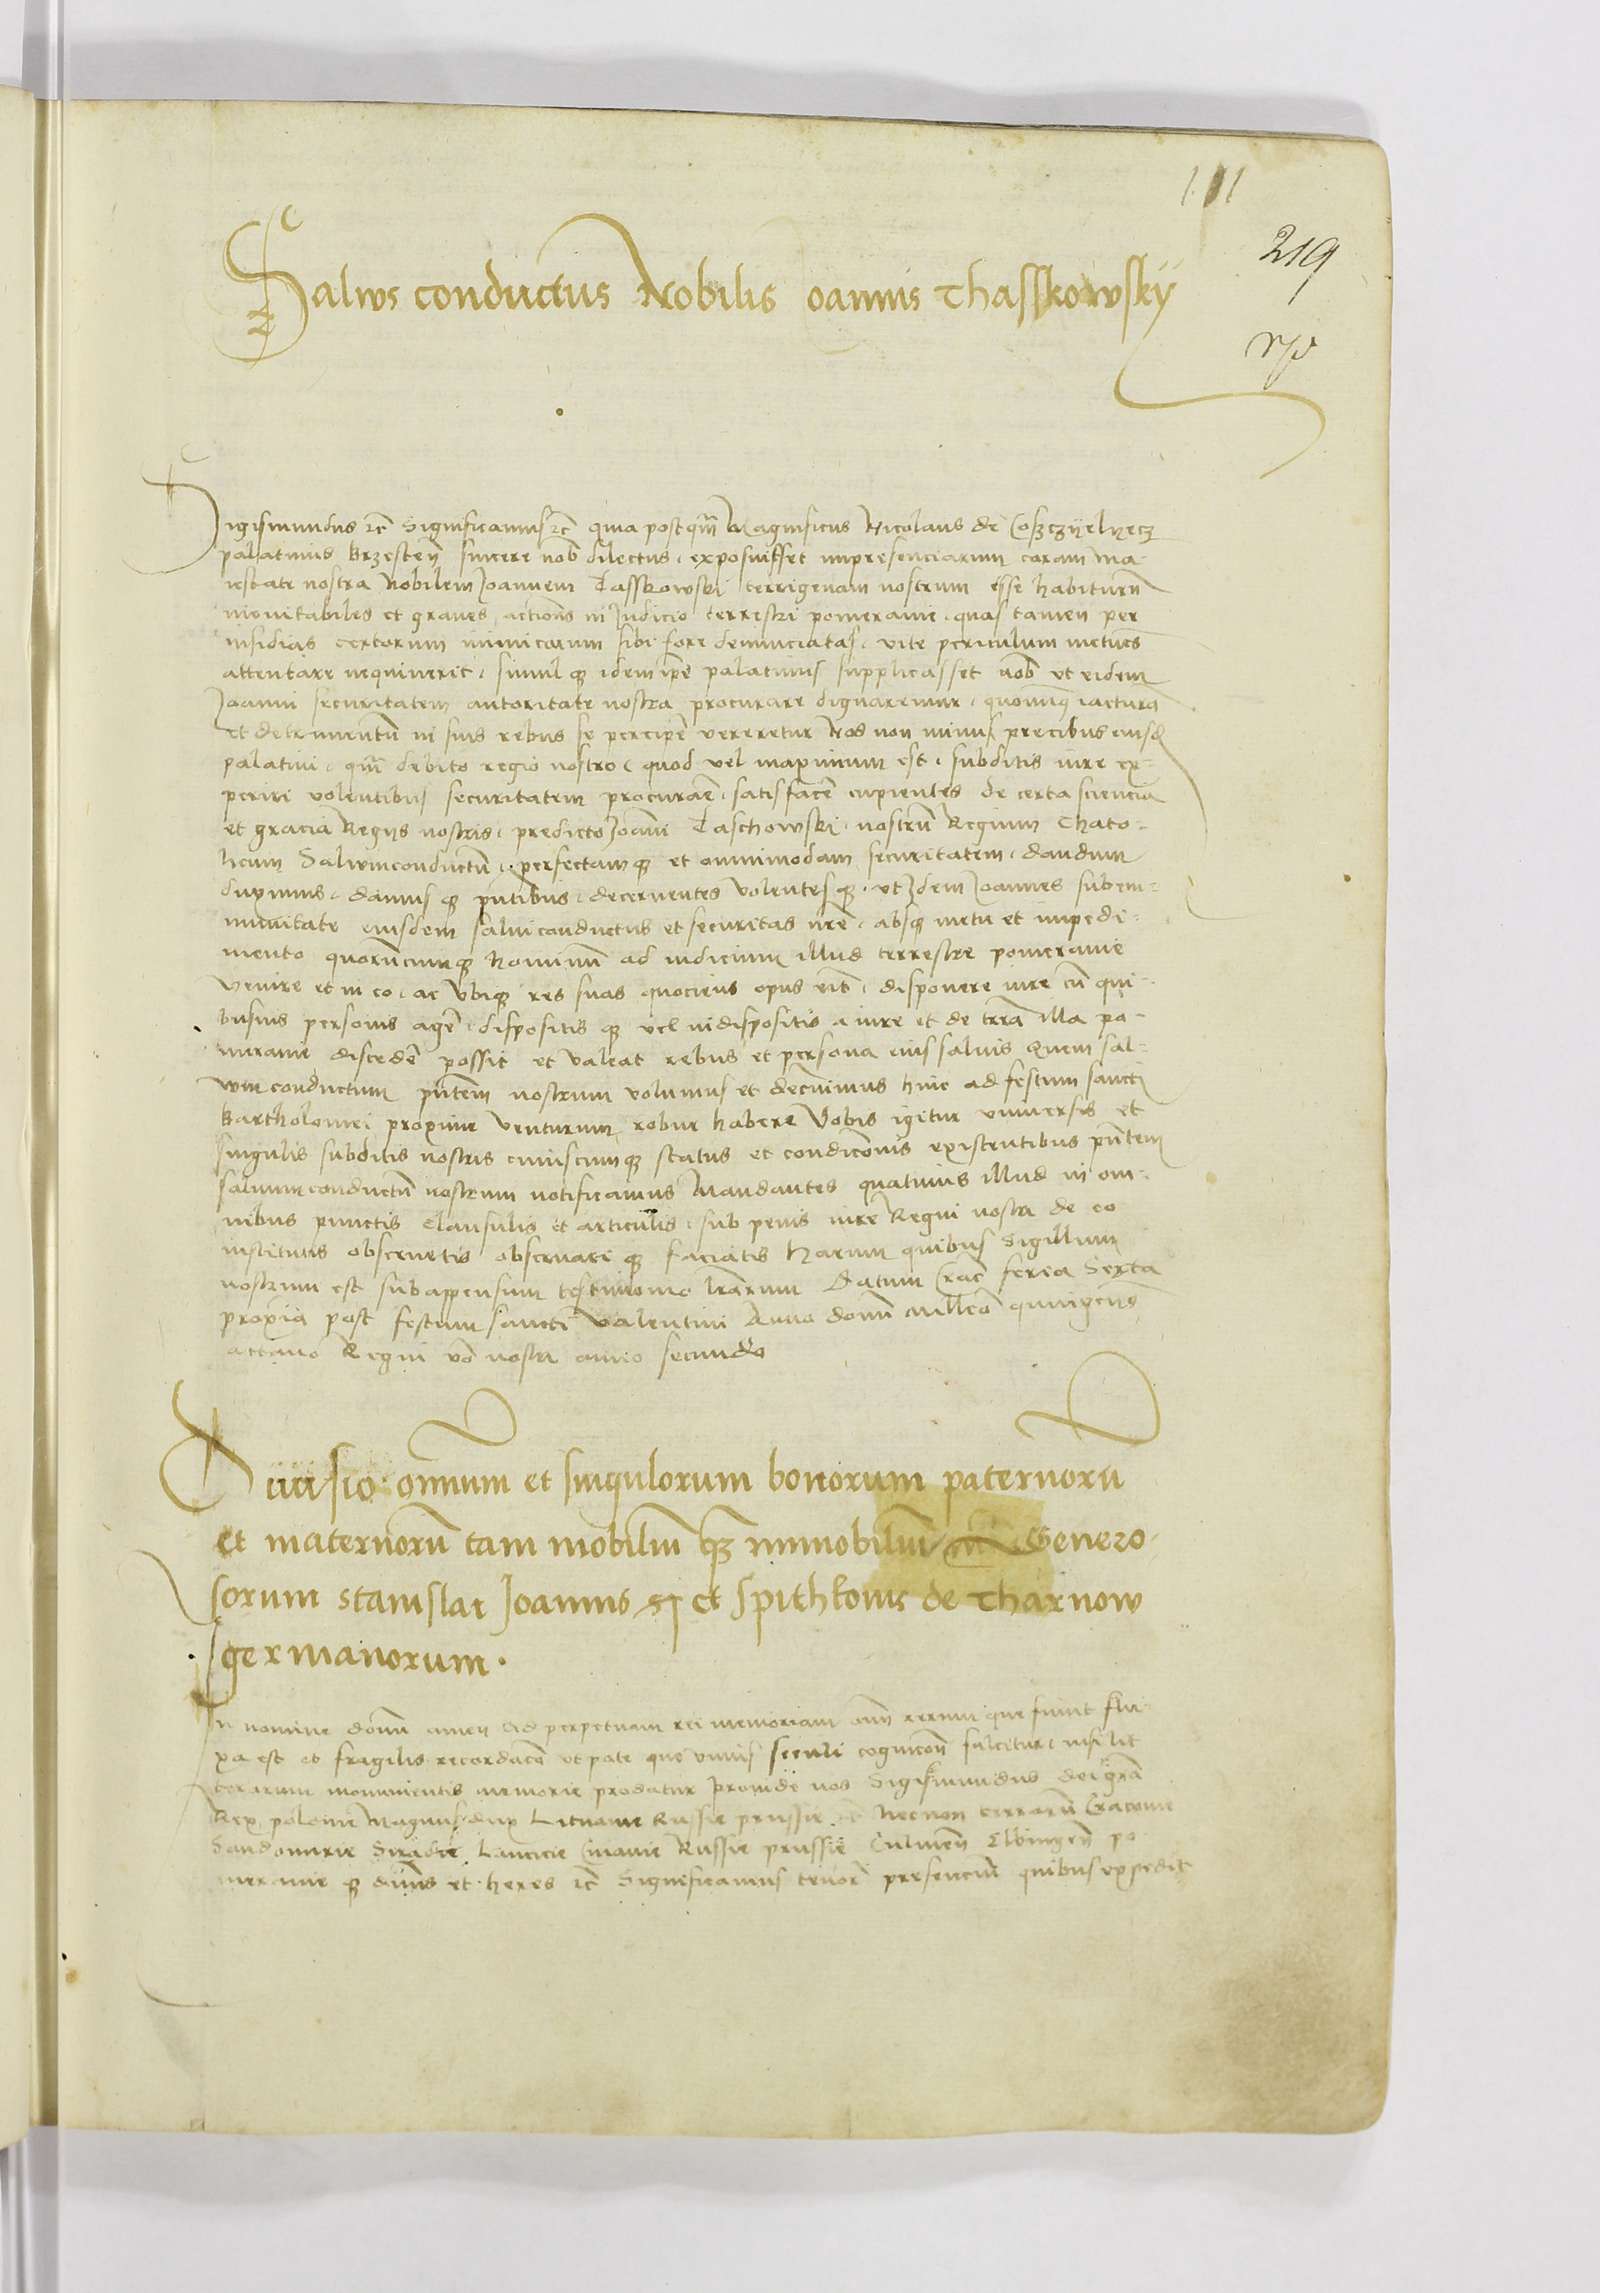 111
219
Salws conductus Nobilis Ioannis Thasskowsky
Sigismundus etc̄ Significamus etc̄ quia postqm̄ Magnificus Nicolaus de Cosczyelyecz
palatinus Brzesteñ sincere nob̄ dilectus, exposuisset inpresenciarum coram Ma-
iestate nostra Nobilem Joannem Tasskowski terrigenam nostrum esse habiturū
inevitabiles et graves actiones in Judicio terrestri pomeranie, quas tamen per
insidias certorum inimicorum sibi fore denunciatas, vite periculum metues
attentare nequiverit, simul qz idem ipē palatinus supplicasset nob̄ ut eidem
Joanni securitatem autoritate nostra procurare dignaremur, iactura
et detrimentū in suis rebus se percipē vereretur Nos non minus precibus eiusd
palatini, qm̄ debito regio nostro, quod vel maximum est, subditis iure ex-
periri volentibus securitatem procurare, satisfacē cupientes de certa sciencia
et gracia Regiis nostris, predicto Joāni Taschowski, nostrū Regium Chato-
licum Salvumconductū, perfectamqz et omnimodam securitatem, dandum
duximus, damus qz pn̄tibus, decernentes volentesqz, ut Idem Joannes sub em-
munitate eiusdem salvi conductus et securitas nrē, absqz metu et impedi-
mento quorūcumqz hominū ad iudicium illud terrestre pomeranie
venire et in eo, ac ubiqz res suas quociens opus erit, disponere iure cū qui-
busvis personis agē, dispositis qz vel indispositis a iure et de terra illa po-
meranie discedē possit et valeat rebus et persona eius salvis Quem sal-
vum conductum pn̄tem nostrum volumus et decrevimus hinc ad festum sancti
Bartholomei proxime venturum, robur habere Vobis igitur universis et
singulis subditis nostris cuiuscumqz status et condicōnis existentibus pn̄tem
salvumconductū nostrum notificamus Mandantes quatinus illud in om-
nibus punctis clausulis et articulis, sub penis iure Regni nostri de eo
institutis observetis observariqz faciatis Harum quibus Sigillum
nostrum est subappensum testimonio lrārum Datum Crac̄ feria Sexta
proxīa post festum sancti Valentini Anno domī Millēo quingentēs
octavo Regni v̄o nostri anno secundo
Divisio omnium et singulorum bonorum paternorū
et maternorū tam mobiliū qz immobiliū Genero-
sorum Stanislai Joannis et Spithkonis de Tharnow
germanorum.
In nomine domī amen Ad perpetuam rei memoriam om̄ rerum que fiunt flu-
xa est et fragilis recordacō ut pote que unius seculi cognicōe fulcitur, nisi lit
terarum monumentis memorie prodatur Proinde nos Sigismundus dei grā
Rex polonie Magnus dux Lituanie Russie prussie etc̄ Necnon terrarū Cracovie
Sandomirie Siradie Lancicie Cuiavie Russie prussie Culmeñ Elbingeñ po
meranie qz dn̄us et heres etc̄ Significamus tenore presenciū quibus expedit